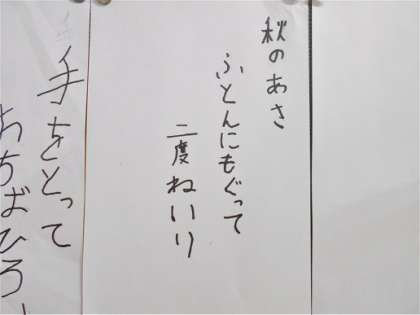 秋のあさ
ふとんにもぐって
二度ねいり
手をとって
おちばひろ